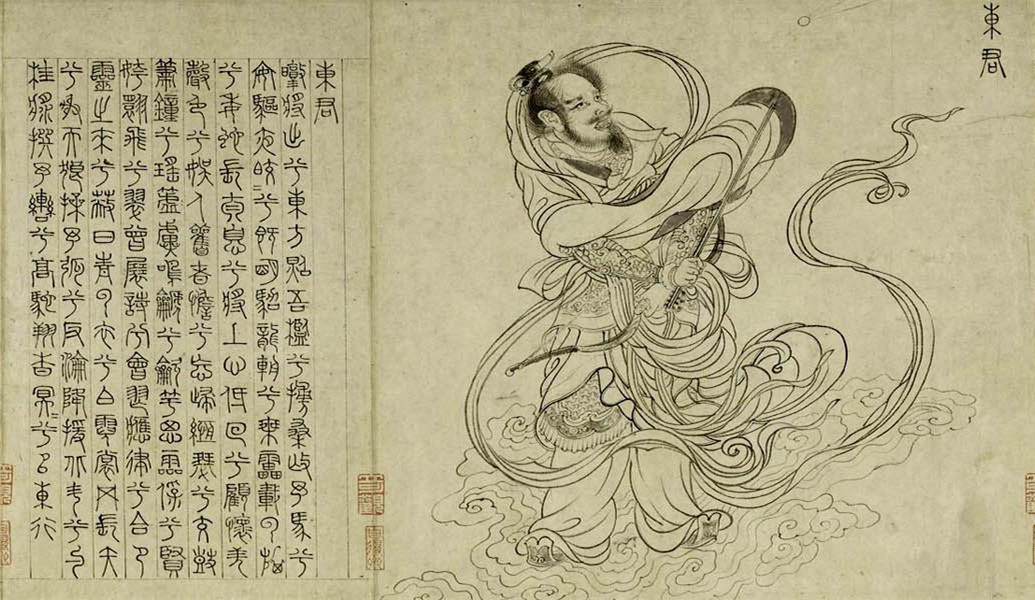 東君
東君
暾將出兮東方照吾檻兮扶桑撫予馬兮
安驅夜皎〻兮既明駕龍輈兮乘靁載雲旗
兮委蛇長太息兮將上心低佪兮顧懷羌
聲色兮娛人觀者憺兮忘歸緪瑟兮交鼓
簫鐘兮瑤簴鳴篪兮龡竽思靈保兮賢
姱翾飛兮翠曾展詩兮會舞應律兮合節
靈之來兮蔽日青雲衣兮白霓裳舉長矢
兮射天狼操予弧兮反淪降援北斗兮酌
桂漿撰予轡兮高駝翔杳冥〻兮以東行